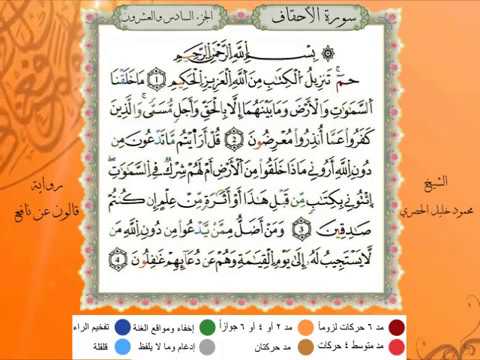 سورة الأحقاف
الجزء السادس والعشرون
بِسْمِ اللَّهِ الرَّحْمَٰنِ الرَّحِيمِ
حمٓ تَنزِيلُ الْكِتَٰبِ مِنَ اللَّهِ الْعَزِيزِ الْحَكِيمِ ١ مَا خَلَقْنَا
السَّمَٰوَٰتِ وَالْأَرْضَ وَمَا بَيْنَهُمَا إِلَّا بِالْحَقِّ وَأَجَلٍ مُّسَمًّى وَالَّذِينَ
كَفَرُوا عَمَّا أُنذِرُوا مُعْرِضُونَ ٢ قُلْ أَرَٰيْتُم مَّا تَدْعُونَ مِن
دُونِ اللَّهِ أَرُونِي مَاذَا خَلَقُوا مِنَ الْأَرْضِ أَمْ لَهُمْ شِرْكٌ فِي السَّمَٰوَٰتِ
ائْتُونِي بِكِتَٰبٍ مِّن قَبْلِ هَٰذَا أَوْ أَثَٰرَةٍ مِّنْ عِلْمٍ إِن كُنتُمْ
صَٰدِقِينَ ٣ وَمَنْ أَضَلُّ مِمَّن يَدْعُوا مِن دُونِ اللَّهِ مَن
لَّا يَسْتَجِيبُ لَهُ إِلَىٰ يَوْمِ الْقِيَٰمَةِ وَهُمْ عَن دُعَائِهِمْ غَٰفِلُونَ ٤
الشيخ
محمود خليل الحصري
رواية
قالون عن نافع
مد ٦ حركات لزوماً
مد ٢ أو ٤ أو ٦ جوازاً
إخفاء ومواقع الغنة
تفخيم الراء
مد متوسط ٤ حركات
مد حركتان
إدغام وما لا يلفظ
قلقلة